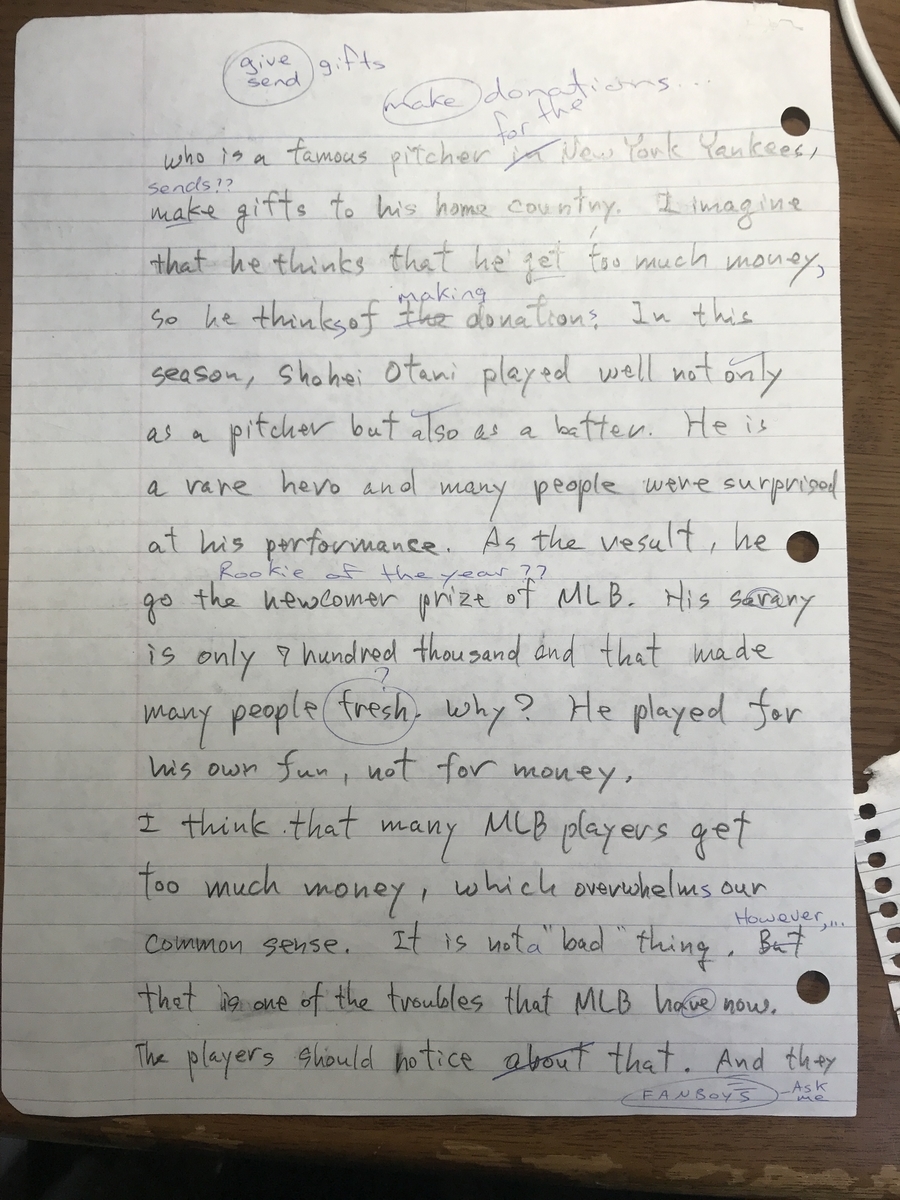 give gifts
send
make donations...
for the
who is a famous pitcher in New York Yankees,
sends??
make gifts to his home country. I imagine
that he thinks that he get too much money,
making
so he thinks of the donations. In this
season, Shohei Otani played well not only
as a pitcher but also as a batter. He is
a rare hero and many people were surprised
at his performance. As the result, he
Rookie of the year??
go the newcomer prize of MLB. His sarary
is only 7 hundred thousand and that made
?
many people fresh. Why? He played for
his own fun, not for money.
I think that many MLB players get
too much money, which overwhelms our
However,...
common sense. It is not a "bad" thing. But
that is one of the troubles that MLB have now.
The players should notice about that. And they
FANBOYS - Ask
me